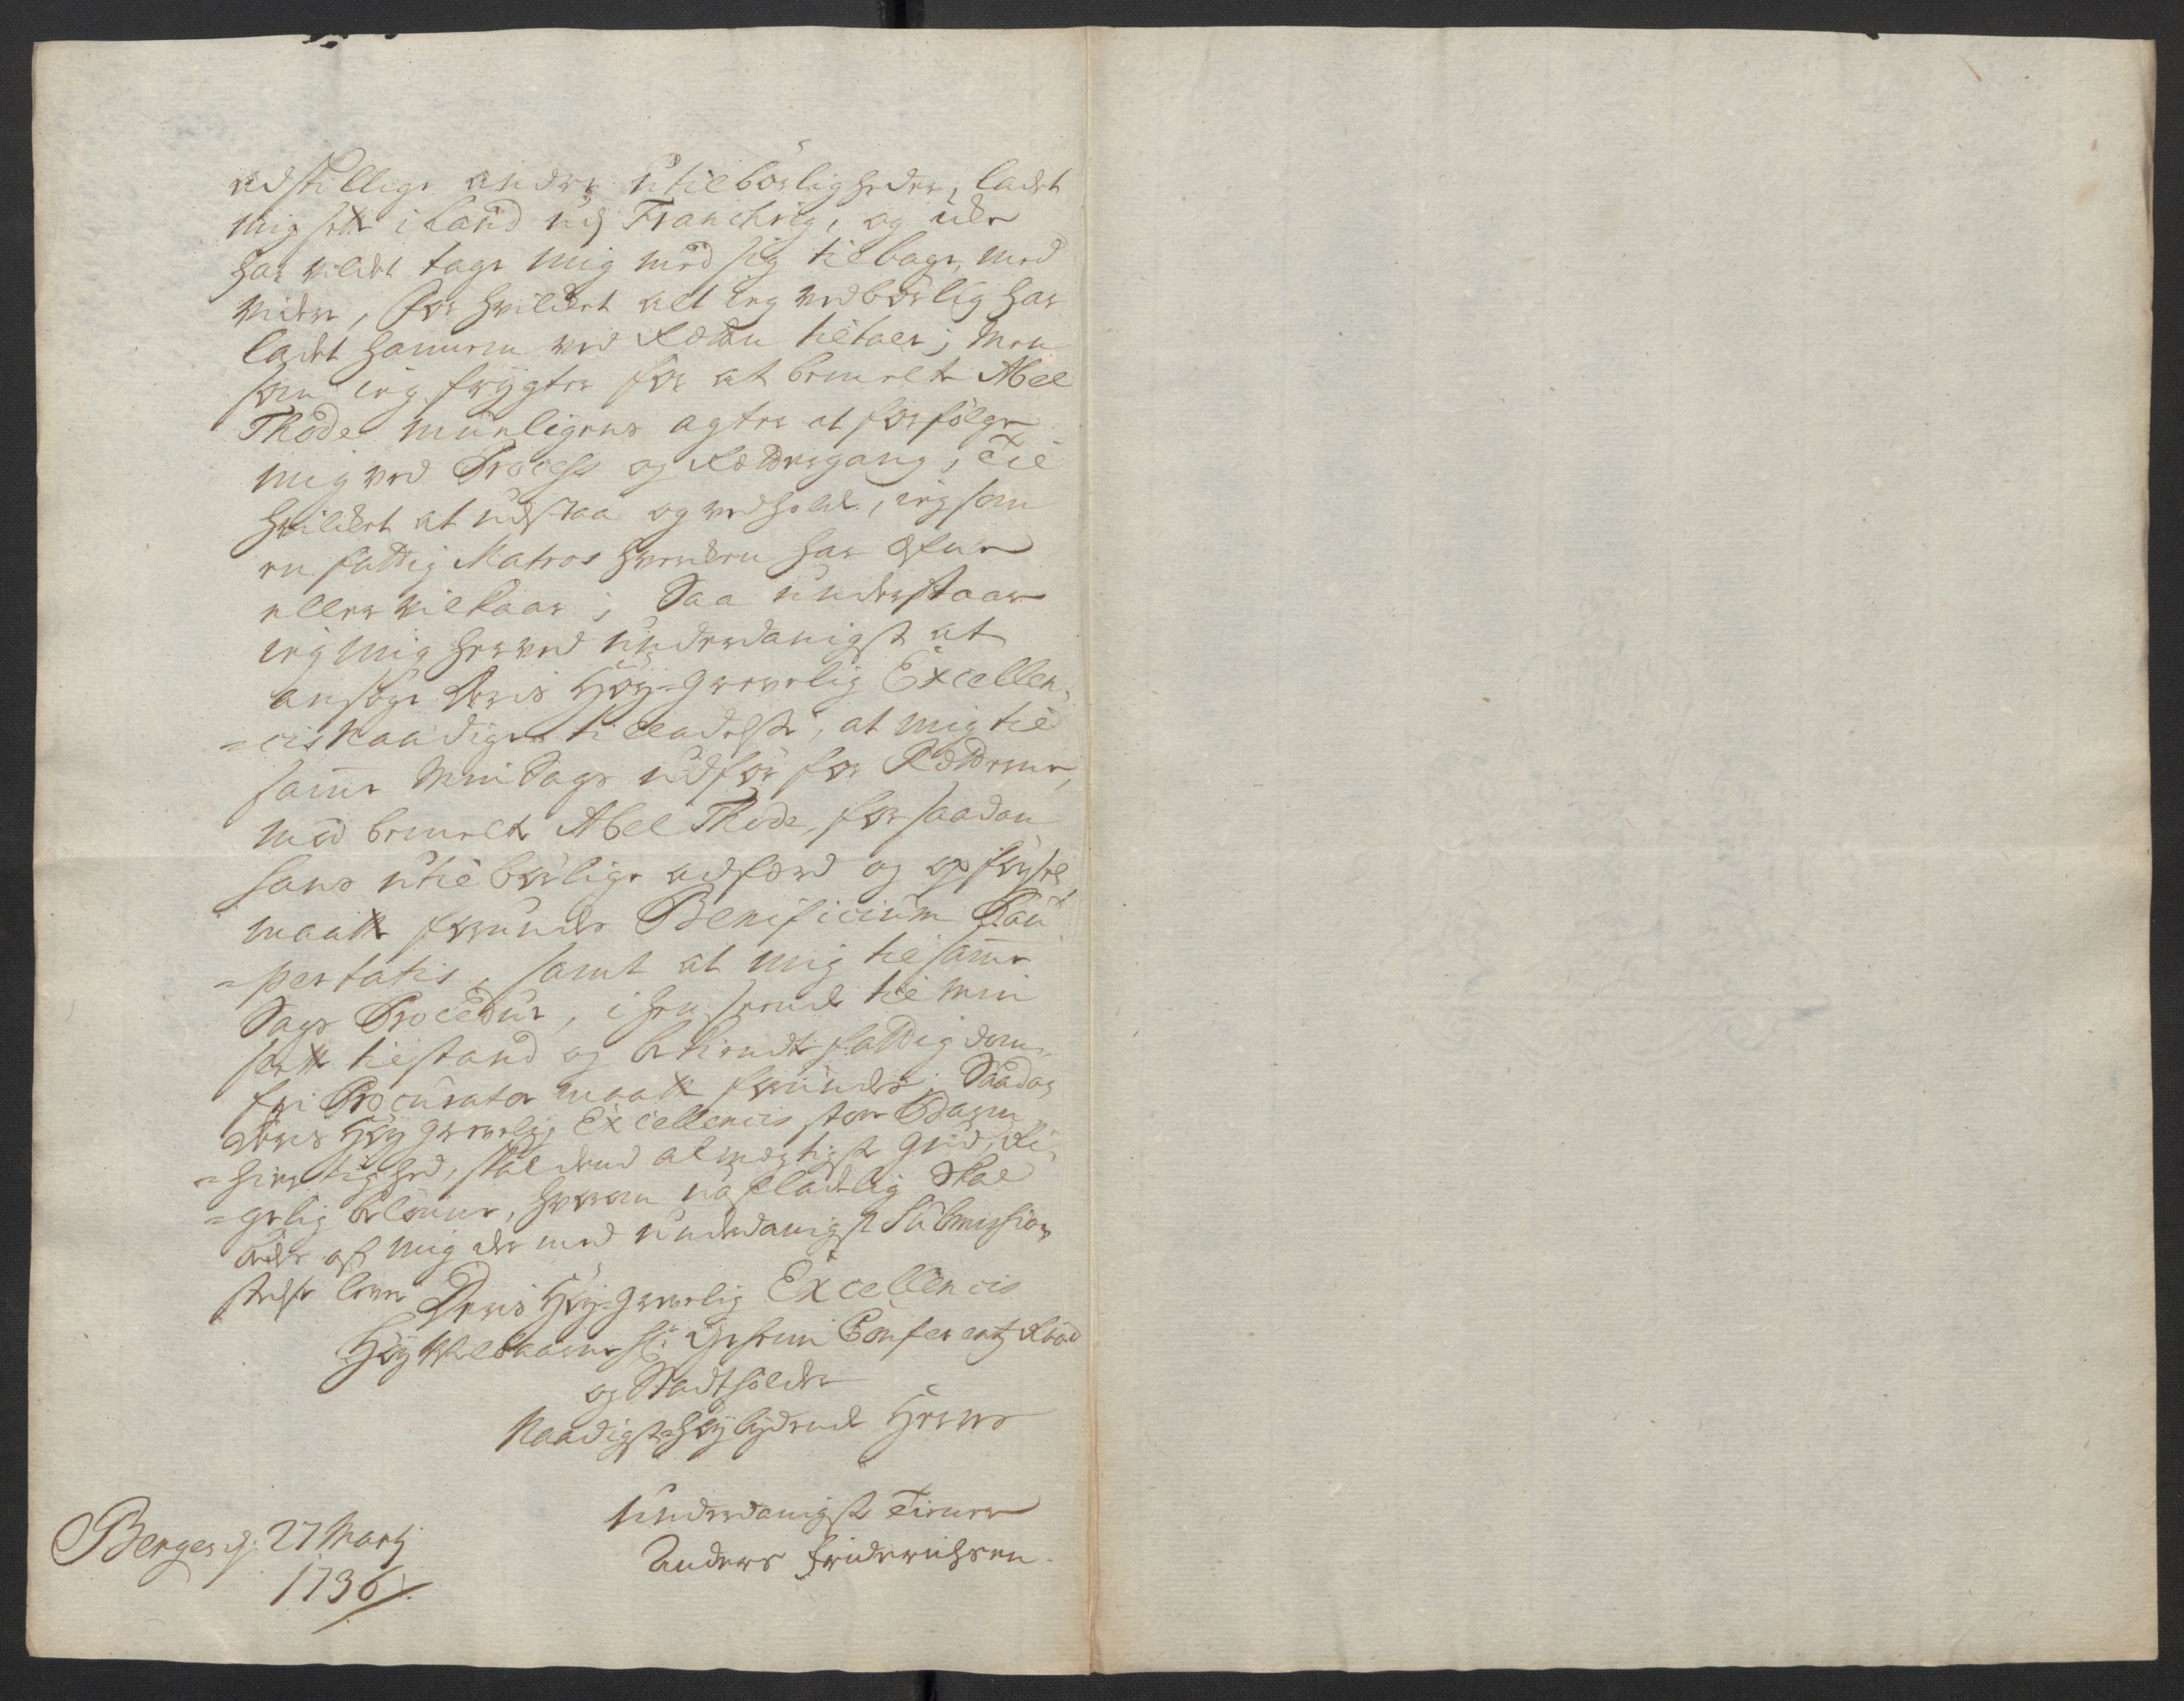 adskillige andre utilbörligheder, ladet
mig sætte i Land udj Franchrig, og icke
har vildet tage mig med sig tilbage, med
videre, for hvilcket alt ieg vedbörlig har
ladet hannem ved Rætten tiltale; Men
som ieg frygter for at bemelte Abel
Thode mueligens agter at forfölge
mig ved Process og Rættergang; Til
hvilcket at udstaa og vedholde, ieg som
en fattig Matros hvercken har Æfne
eller vilkaar; Saa understaar
ieg mig herved underdanigst at
ansöge Deris Höy-Grevelig Excellen-
=cis Naadigste tilladelse, at mig til
samme Min Sags udför for Rætterne,
med bemelte Abel Thode, for saadan
hans utilbörlige adfærd og opförsel,
maatte forundes Benificium Pau
=pertatis, samt at mig til samme
Sags Procedur, i henseende til Min
slette tilstand og bekiendte fattigdom,
fri Procurator maatte forundes; Saadan
Deris Höy Grevelig Excellencis store Barm
=hiertighed, skal dend almægtigste Gud Ri-
=gelig belönne, hvorom uafladelig skal
bedes af mig der med underdanigst Submission
stedse lever Deris Höy-Grevelig Excellencis
Höy Velbaarne Hr Geheime Conferentz Raad
og Stadtholder
Naadigste Höybydende Herres
Underdanigste Tiener
Anders Friderichsen
Bergen d: 27 Martj
1736